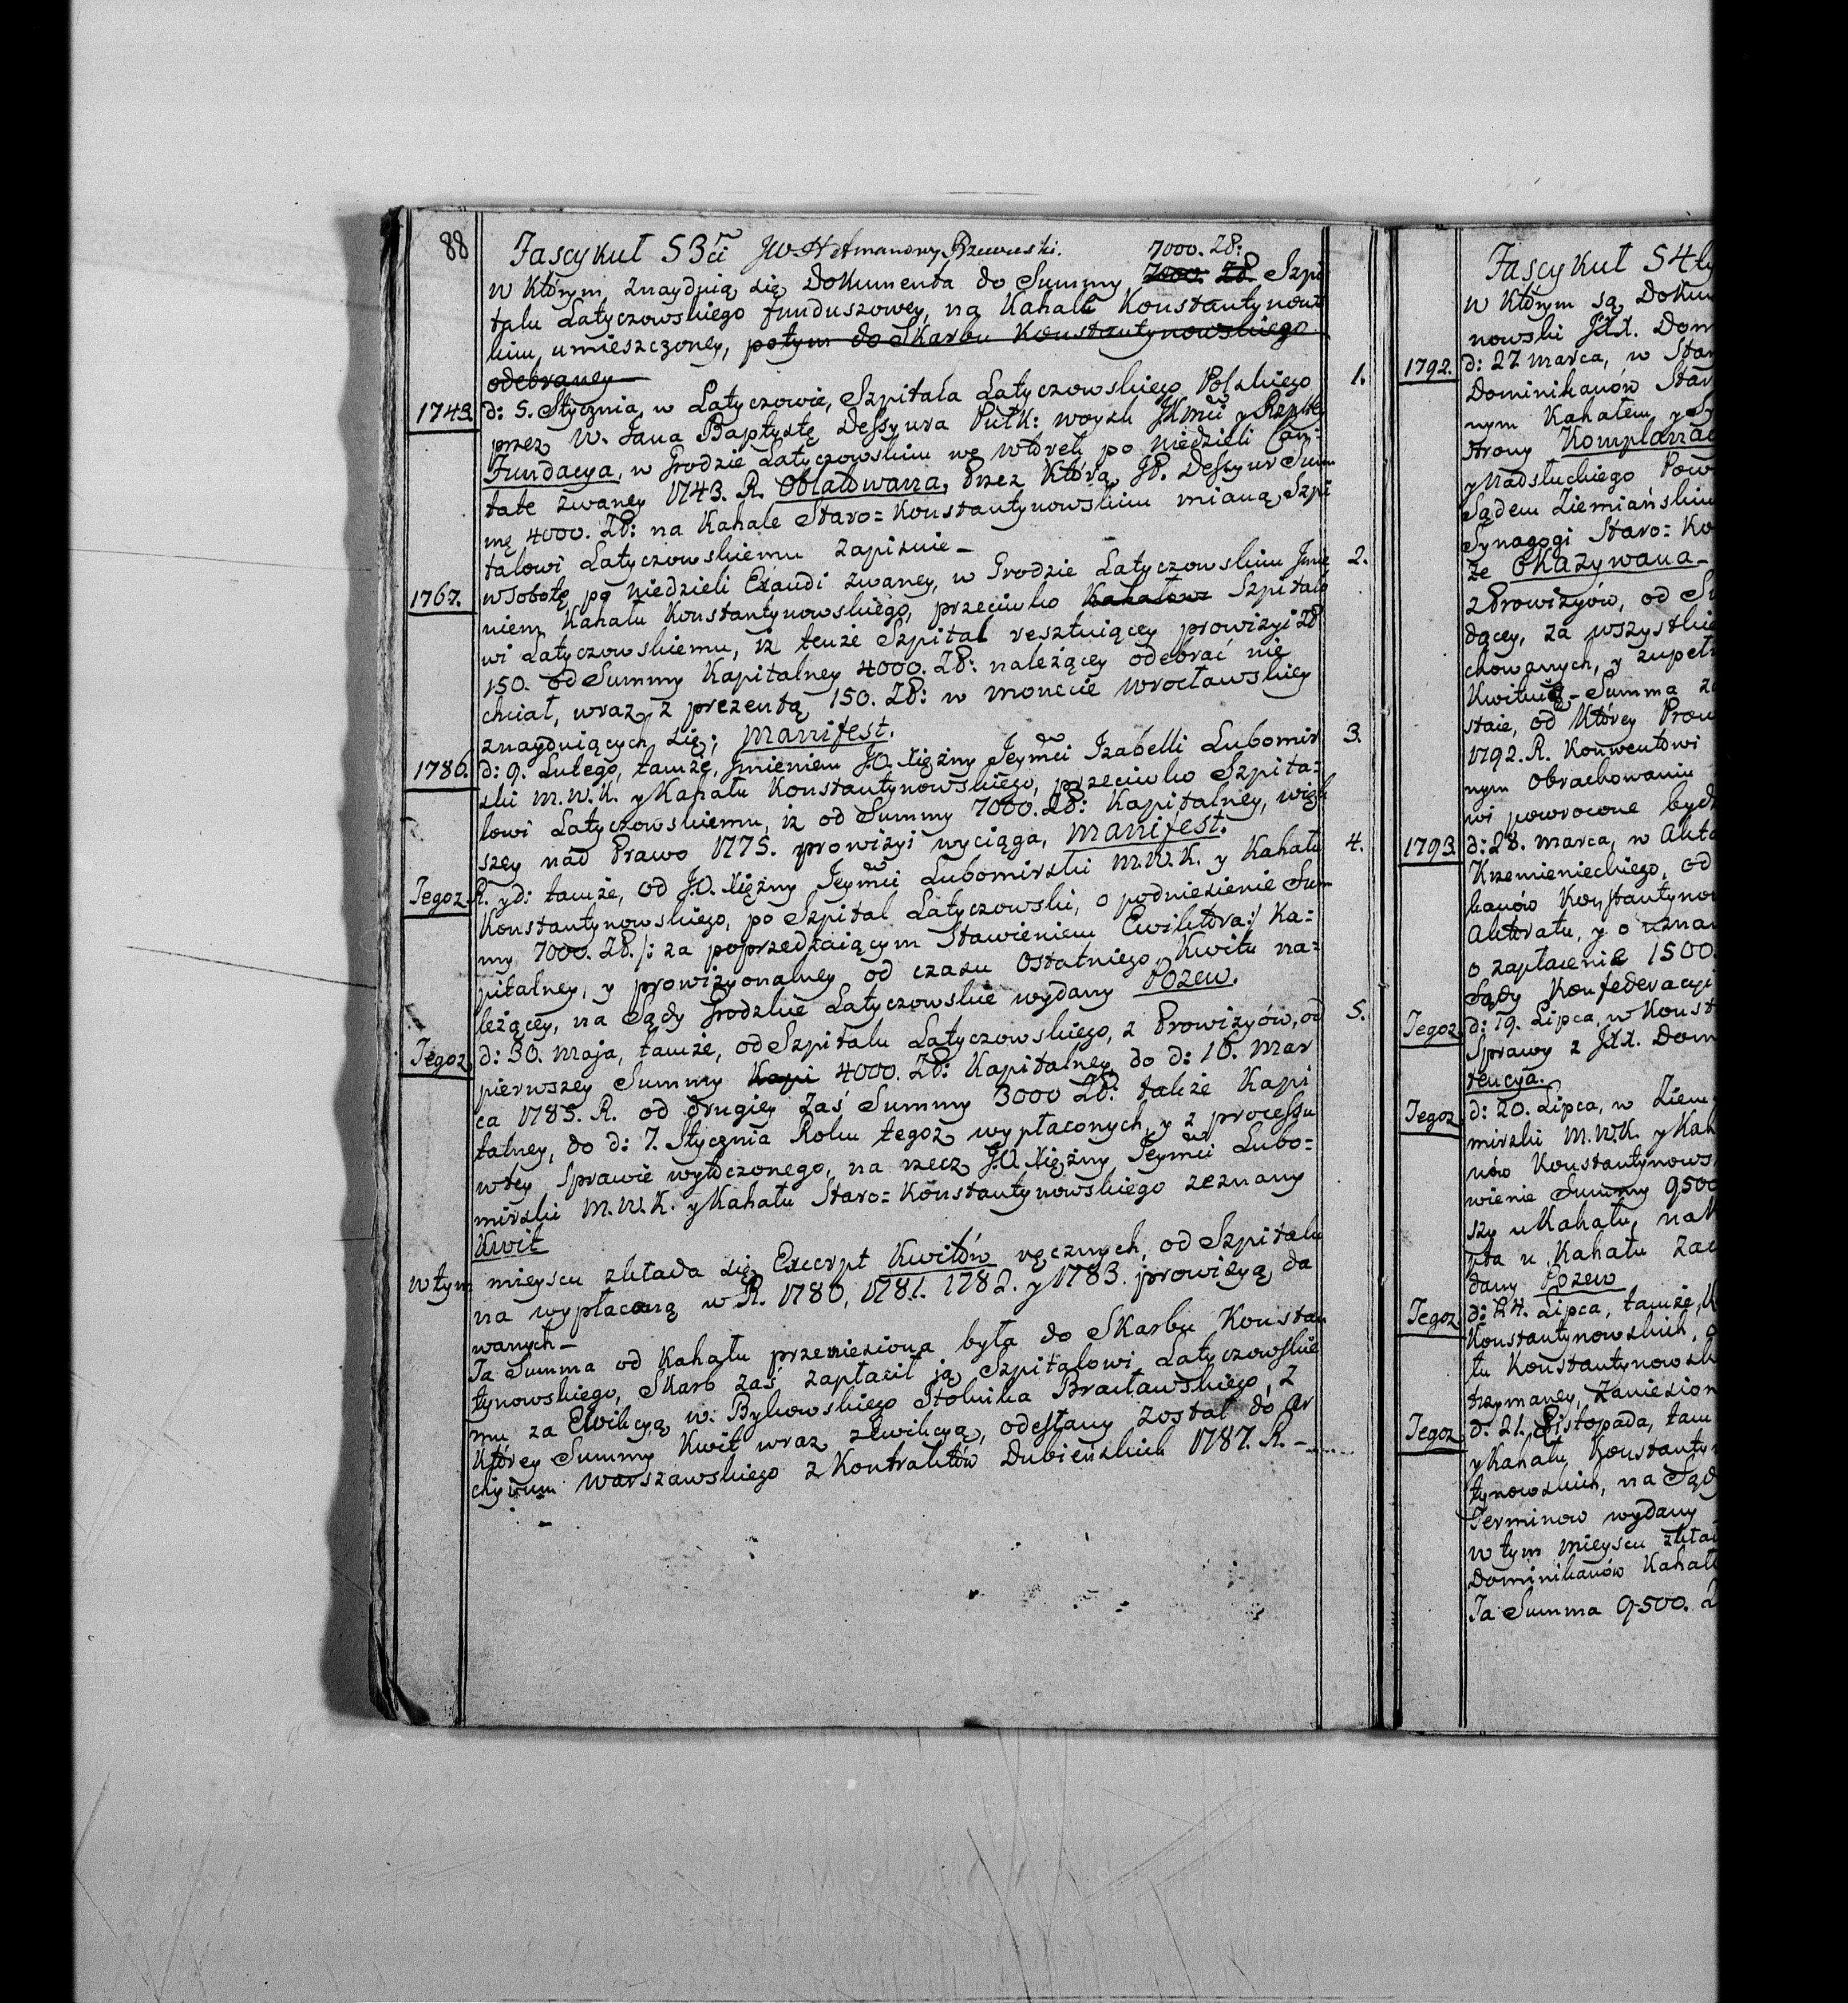 88
Fascykuł 53ci JW Hetmanowy Rzewuski. 7000. Zł:
w którym znayduią się Dokumenta do Summy 7000. Zł Szpi
talu Latyczowskiego funduszowey, na Kahale Konstantynows
kim, umieszczoney, potym do Skarbu Konstantynowskiego
odebraney
1743. d: 5. Stycznia, w Latyczowie, Szpitala Latyczowskiego Polskiego 1.
przez W. Jana Baptystę Dessyura Pułk: woysk JKmci y Rzpltey
Fundacya, w Grodzie Latyczowskim we wtorek po niedzieli Can-
tate zwaney 1743. R. Oblatowana, Przez którą JP. Dessyur Sum
mę 4000. Zł: na Kahale Staro=Konstantynowskim mianą Szpi
talowi Latyczowskiemu zapisuie_
1767. w Sobotę po niedzieli Exaudi zwaney, w Grodzie Latyczowskim Jmie 2.
niem Kahału Konstantynowskiego, przeciwko Kahałow Szpitalo
wi Latyczowskiemu, iż tenże Szpital resztuiącey prowizyi Zł
150. od Summy Kapitalney 4000. Zł: należącey odebrać nie
chciał, wraz z prezentą 150. Zł: w monecie wrocławskiey
znayduiących się; Manifest.
1786. d: 9. Lutego, tamże, Jmieniem J.O. Xiężny Jeymci Izabelli Lubomir 3.
ski M.W.K. y Kahału Konstantynowskiego, przeciwko Szpita=
lowi Latyczowskiemu, iż od Summy 7000. Zł: Kapitalney, więk
szey nad Prawo 1775. prowizyi wyciąga, Manifest.
Tegoz R. y d: tamże, od J.O. Xiężny Jeymci Lubomirski M.W.K. y Kahału 4.
Konstantynowskiego, po Szpital Latyczowski, o podniesienie Sum
my 7000. Zł. /: za poprzedzaiącym Stawieniem Ewiktora:/ Ka=
pitalney, y prowizyonalney od czasu Ostatniego Kwitu na=
leżącey, na Sądy Grodzkie Latyczowskie wydany Pozew.
Tegoz d: 30. Maja, tamże, od Szpitalu Latyczowskiego, z Prowizyów, od 5.
pierwszey Summy Kapi 4000. Zł: Kapitalney, do d: 10. Mar
ca 1785. R. od drugiey zaś Summy 3000 Zł: także Kapi
talney, do d: 7. Stycznia Roku tegoz wypłaconych, y z processu
w tey Sprawie wytoczonego, na rzecz J.O. Xiężny Jeymci Lubo=
mirski M.W.K. y Kahału Staro=Konstantynowskiego zeznany
Kwit
w tym mieyscu zkłada się Excerpt Kwitów ręcznych, od Szpitalu
na wypłaconą w R. 1780, 1781. 1782. y 1783. prowizyą da
wanych_
Ta Summa od Kahału przeniesiona była do Skarbu Konstan
tynowskiego, Skarb zaś zapłacił ją Szpitalowi Latyczowskie
mu za Ewikcyą w: Bykowskiego Stolnika Bracławskiego, z
którey Summy Kwit wraz z ewikcyą, odesłany został do Ar
chywum Warszawskiego z Kontraktów Dubieńskich 1787. R.
Fascykuł 54ty
w którym są Doku
nowski JXX. Dom
1792. d: 27 Marca, w Star
Dominikanów Star
nym Kahałem, y Sy
strony Komplanac
y Nadsłuckiego Pow
Sądem Ziemiańskim
Synagogi Staro=Ko
że Okazywana_
z Prowizyów, od Su
dącey, za wszystkie
chowanych, y zupełn
Kwituię_ Summa z
staie, od którey Prow
1792. R. Konwentowi
nym Obrachowaniu
wi powrocone będ
1793. d: 28. Marca, w Akta
Krzemienieckiego, od
kanów Konstantynow
Aktoratu, y o uznan
o zapłacenie 1500.
Sądy Konfederacyi
Tegoz d: 19. Lipca, w Konst
Sprawy z JXX. Dom
tencya.
Tegoz d: 20. Lipca, w Ziem
mirski M.W.K. y Kah
nów Konstantynows
wienie Summy 9500
szy u Kahału, na
pta u Kahału Za
dany Pozew
Tegoz d: 24. Lipca, tamże,
Konstantynowskich,
łu Konstantynowsk
trzymaney, zaniesion
Tegoz d: 21. Listopada, tam
y Kahału Konstanty
tynowskich, na Sąd
Terminow wydany
w tym mieyscu zkład
Dominikanów Kahał
Ta Summa 9500. Z